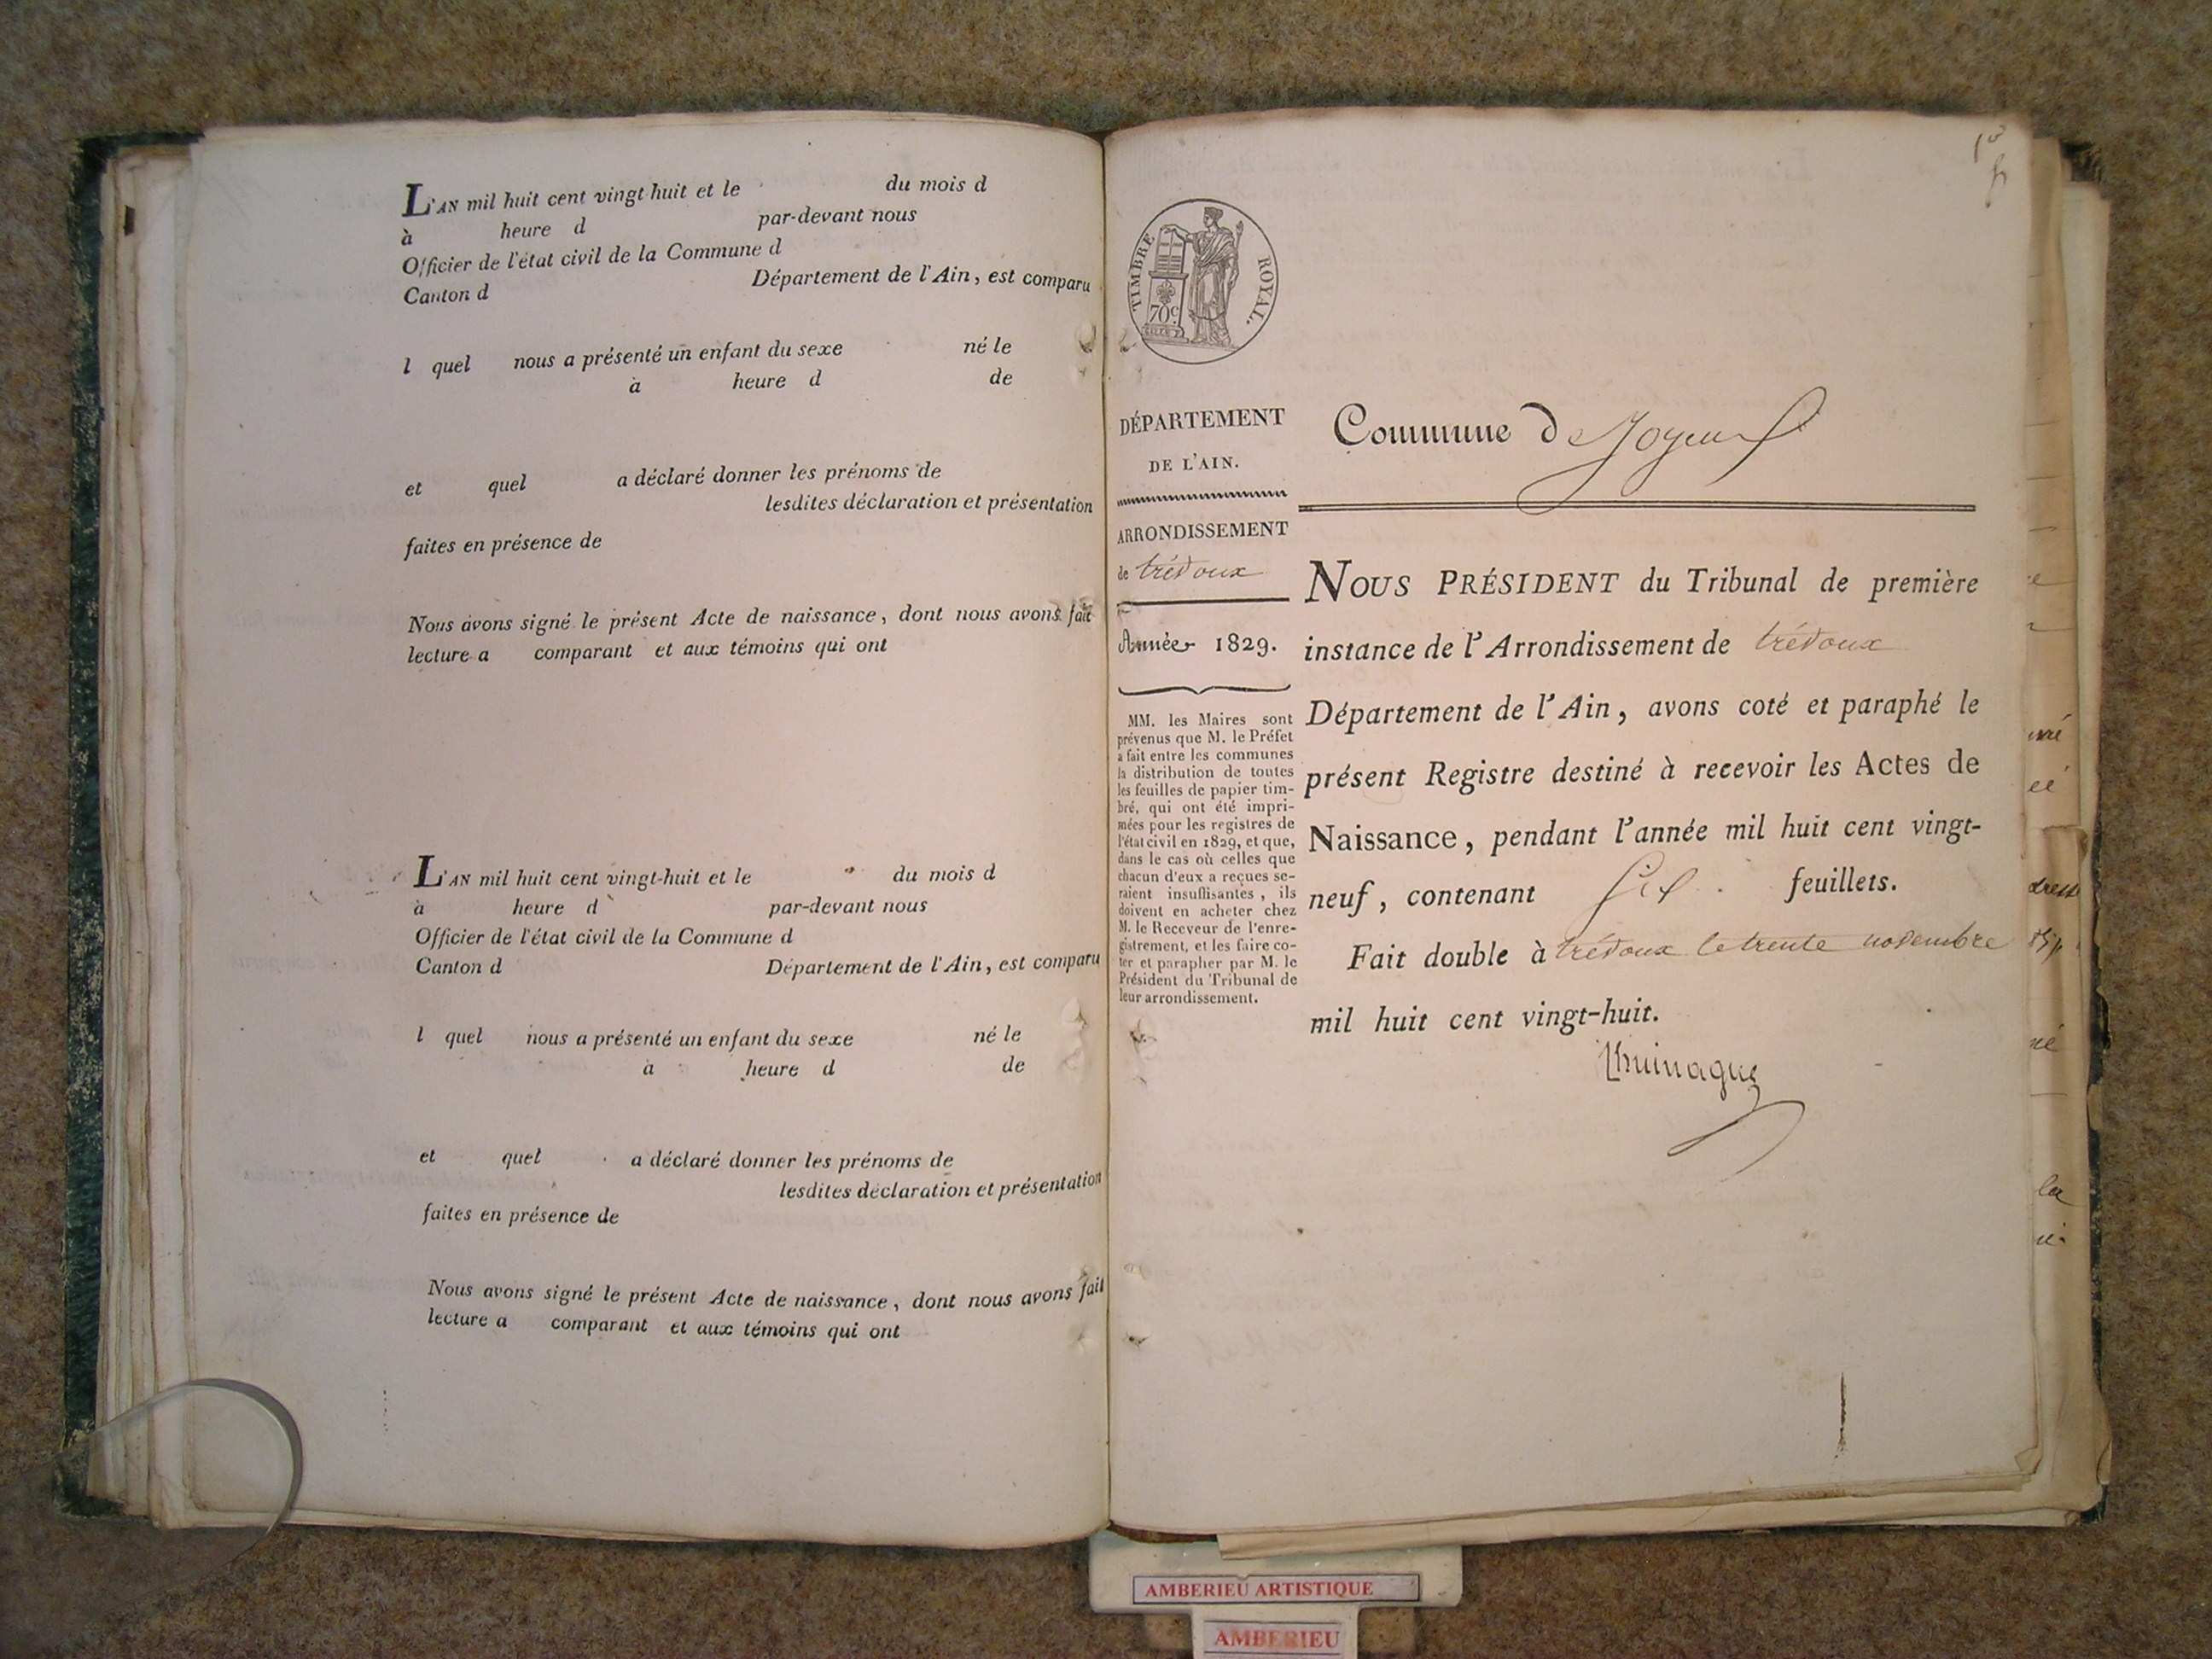 L'AN mil huit cent vingt-huit et le du mois d
à heure d par-devant nous
Officier de l'état civil de la Commune d
Canton d Département de l'Ain, est comparu
l quel nous a présenté un enfant du sexe né le
à heure d de
et quel a déclaré donner les prénoms de
lesdites déclaration et présentation
faites en présence de
Nous avons signé le présent Acte de naissance, dont nous avons fait
lecture a comparant et aux témoins qui ont
L'AN mil huit cent vingt-huit et le du mois d
à heure d par-devant nous
Officier de l'état civil de la Commune d
Canton d Département de l'Ain, est comparu
l quel nous a présenté un enfant du sexe né le
à heure d de
et quel a déclaré donner les prénoms de
lesdites déclaration et présentation
faites en présence de
Nous avons signé le présent Acte de naissance, dont nous avons fait
lecture a comparant et aux témoins qui ont
TIMBRE ROYAL.
70c
DÉPARTEMENT
DE L'AIN.
ARRONDISSEMENT
de trévoux
Année 1829.
MM. les Maires sont
prévenus que M. le Préfet
a fait entre les communes
la distribution de toutes
les feuilles de papier tim-
bré, qui ont été impri-
mées pour les registres de
l'état civil en 1829, et que,
dans le cas où celles que
chacun d'eux a reçues se-
raient insuffisantes, ils
doivent en acheter chez
M. le Receveur de l'enre-
gistrement, et les faire co-
ter et parapher par M. le
Président du Tribunal de
leur arrondissement.
Commune de Joyeux
NOUS PRÉSIDENT du Tribunal de première
instance de l'Arrondissement de trévoux
Département de l'Ain, avons coté et paraphé le
présent Registre destiné à recevoir les Actes de
Naissance, pendant l'année mil huit cent vingt-
neuf, contenant six feuillets.
Fait double à trévoux le trente novembre
mil huit cent vingt-huit.
AMBERIEU ARTISTIQUE
AMBERIEU